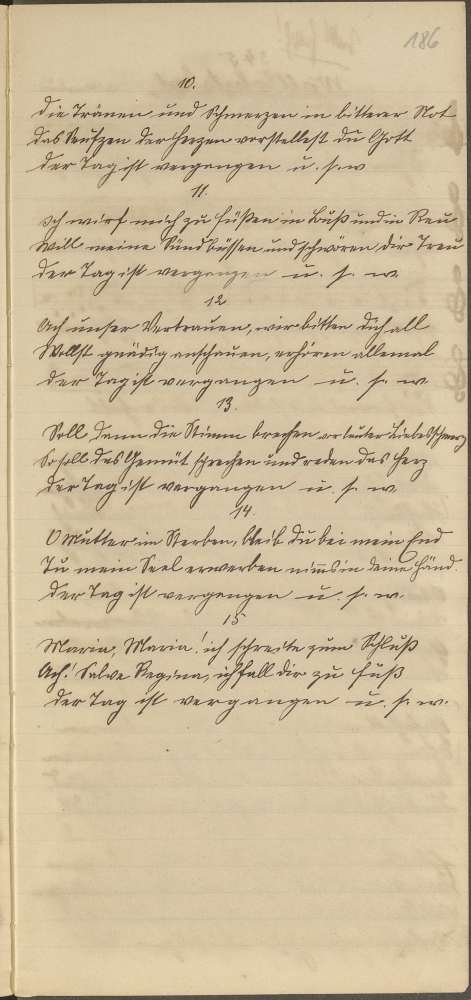 186
10.
Die Tränen und Schmerzen in bitterer Not
das Seufzen der Herzen vorstellest du Gott
der Tag ist vergangen u. s. w
11.
Ich wirf mich zu Füßen in Buß und in Reu
will meine Sünd büssen und schwören dir Treu
der Tag ist vergangen u. s. w.
12
Ach unser Vertrauen, wir bitten dich all
Wollst gnädig anschauen, erhören allemal
der Tag ist vergangen u. s. w
13.
Soll dann die Stimm brechen vor lauter Liebesschmerz
So soll das Gemüt sprechen und reden das Herz
der Tag ist vergangen u. s. w
14.
O Mutter im Sterben, bleib du bei mein End
Tu mein Seel erwerben nimms in deine Händ.
der Tag ist vergangen u. s. w.
15
Maria, Maria! ich schreite zum Schluß
Ach! Salve Regina, ich fall dir zu Fuß
der Tag ist vergangen u. s. w.